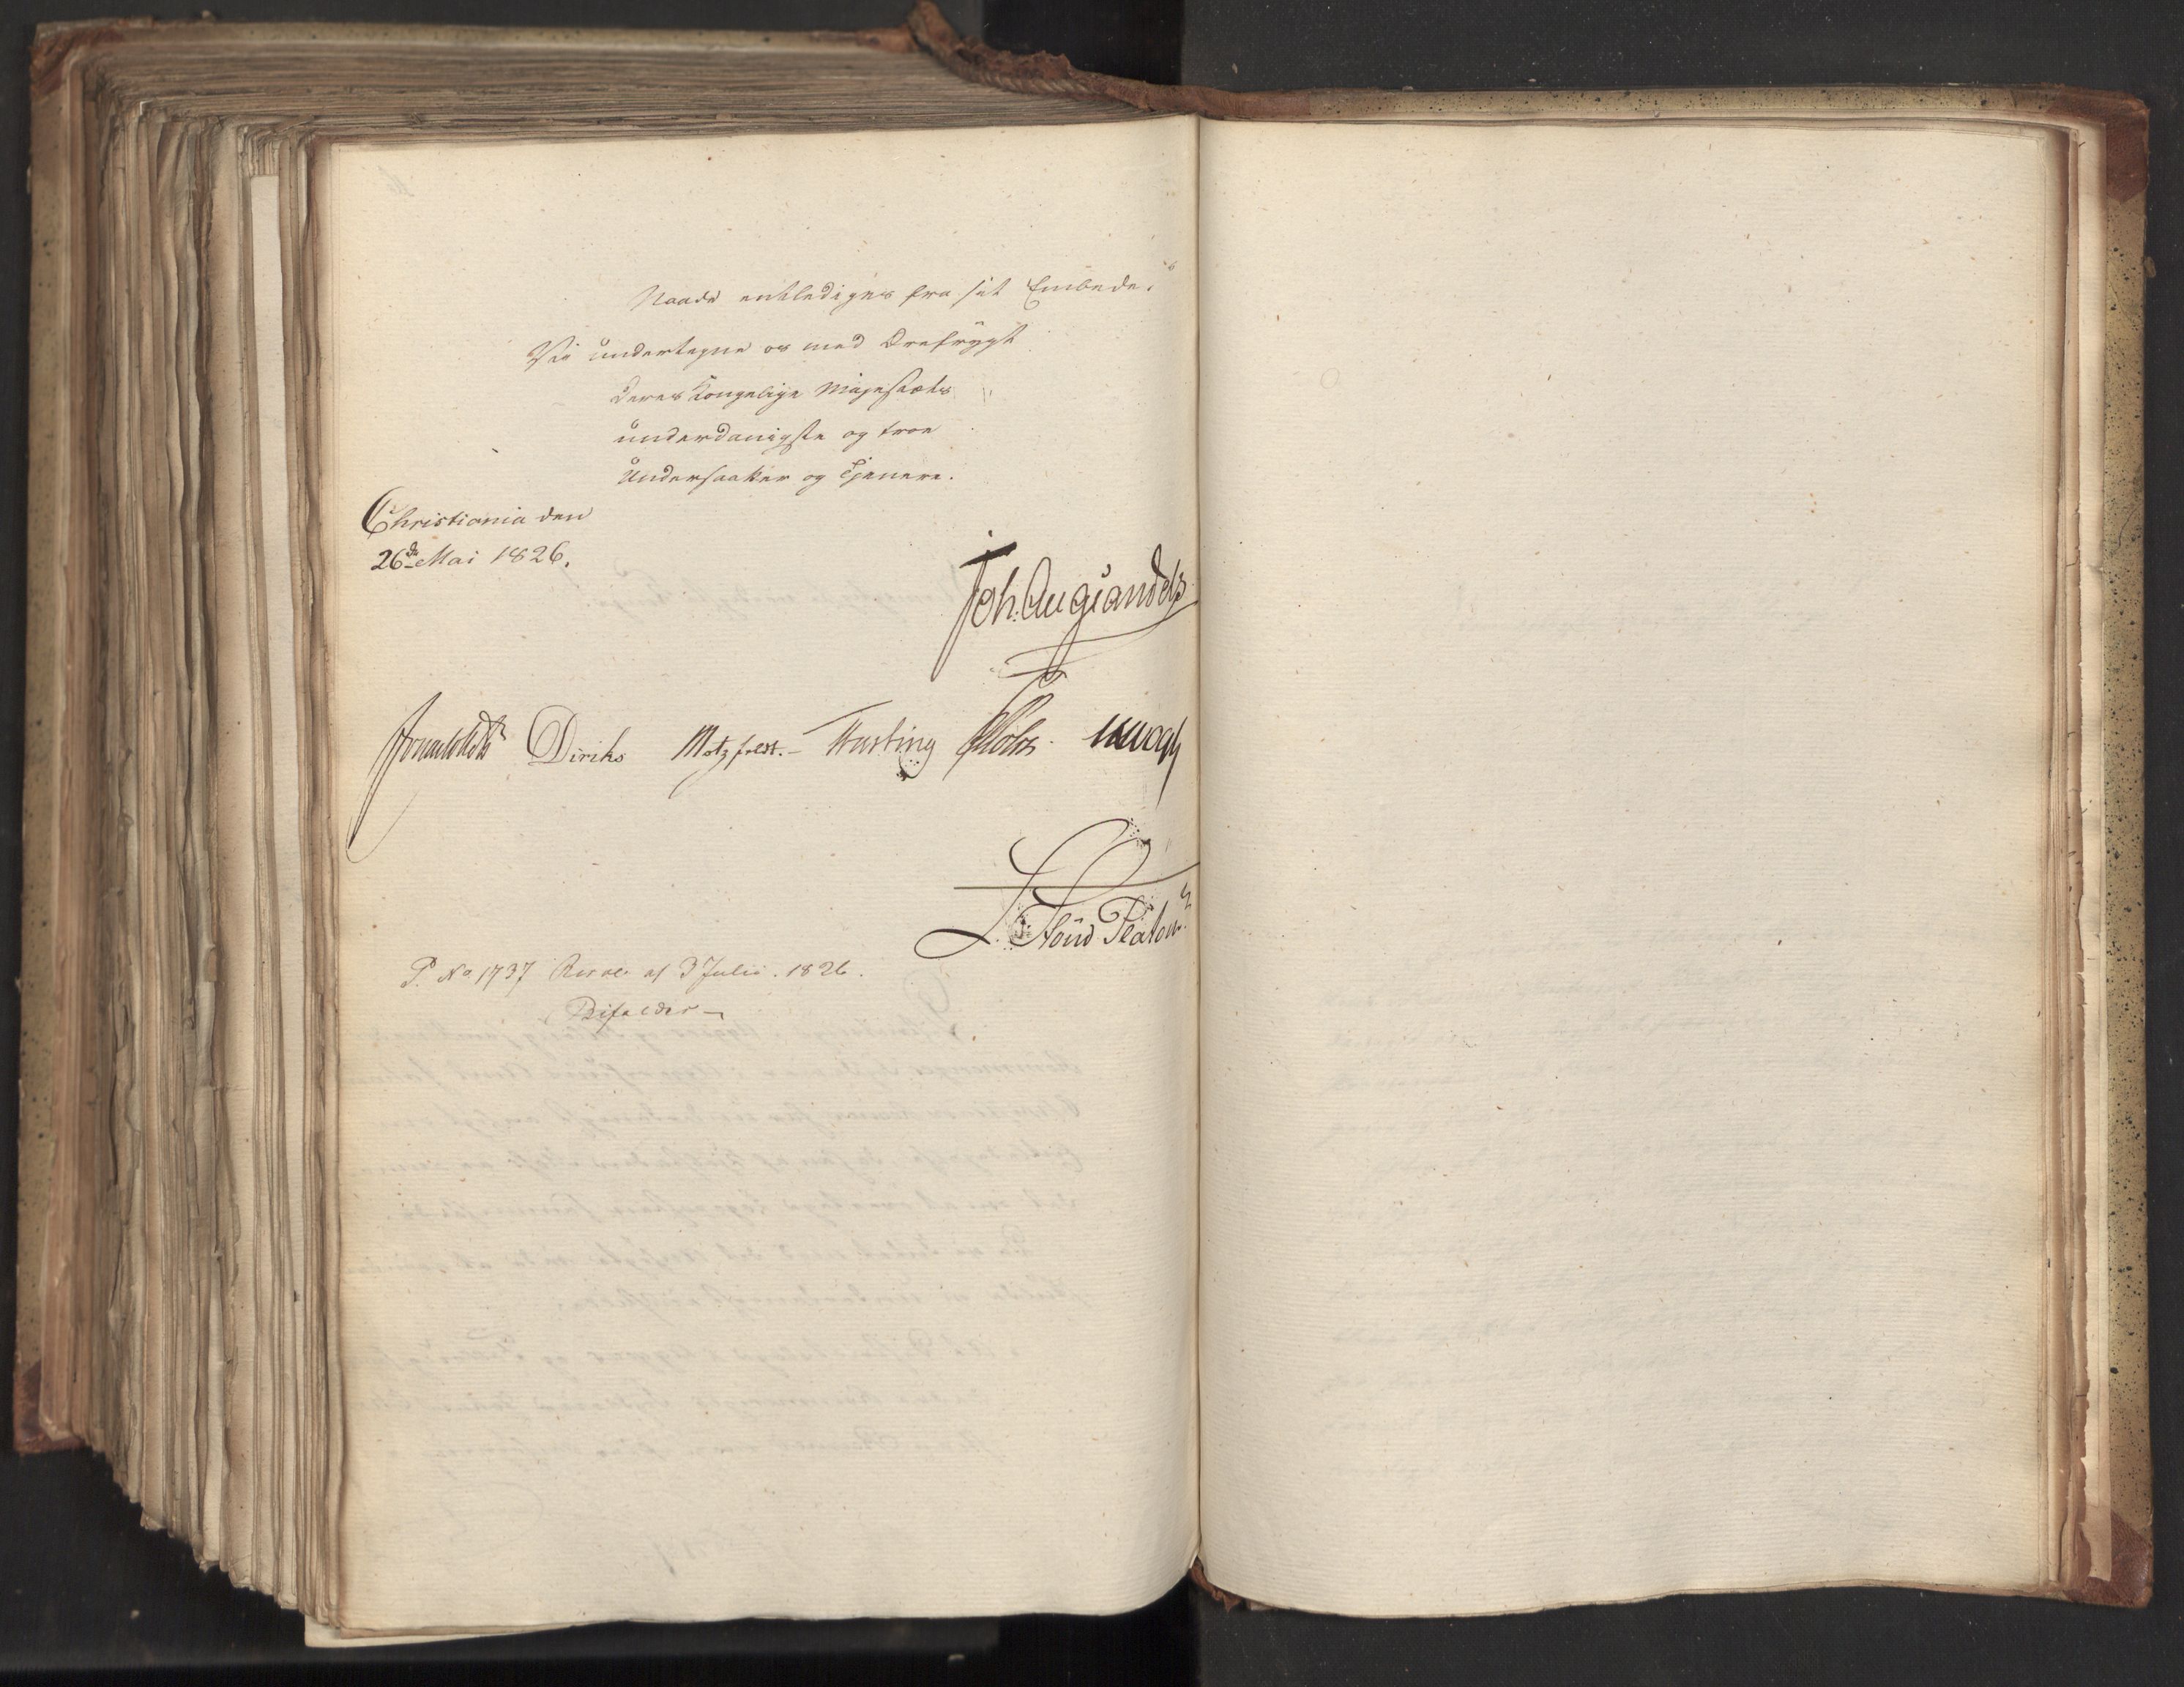 Naade entlediges fra sit Embede.
Vii undertegne os med Ærefrygt
Deres Kongelige Majestæts
underdanigste og troe
Undersaatter og Tjenere.
Christiania den
26de Mai 1826.
Joh. Aug Sandels
Diriks Motzfeldt. Fasting Holst.
L. Stoud Platou
P. No 1737 Resol. af 3 Julii. 1826.
Bifaldes